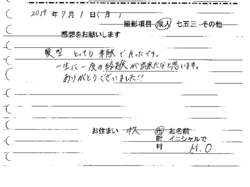 2019年7月1日(月)
撮影項目 成人 七五三 その他
感想をお願いします
とても素敵で良かったです。
一生に一度の経験が出来たなと思います。
ありがとうございました!!
お住まい 市 お名前
イニシャルで
村 M.O